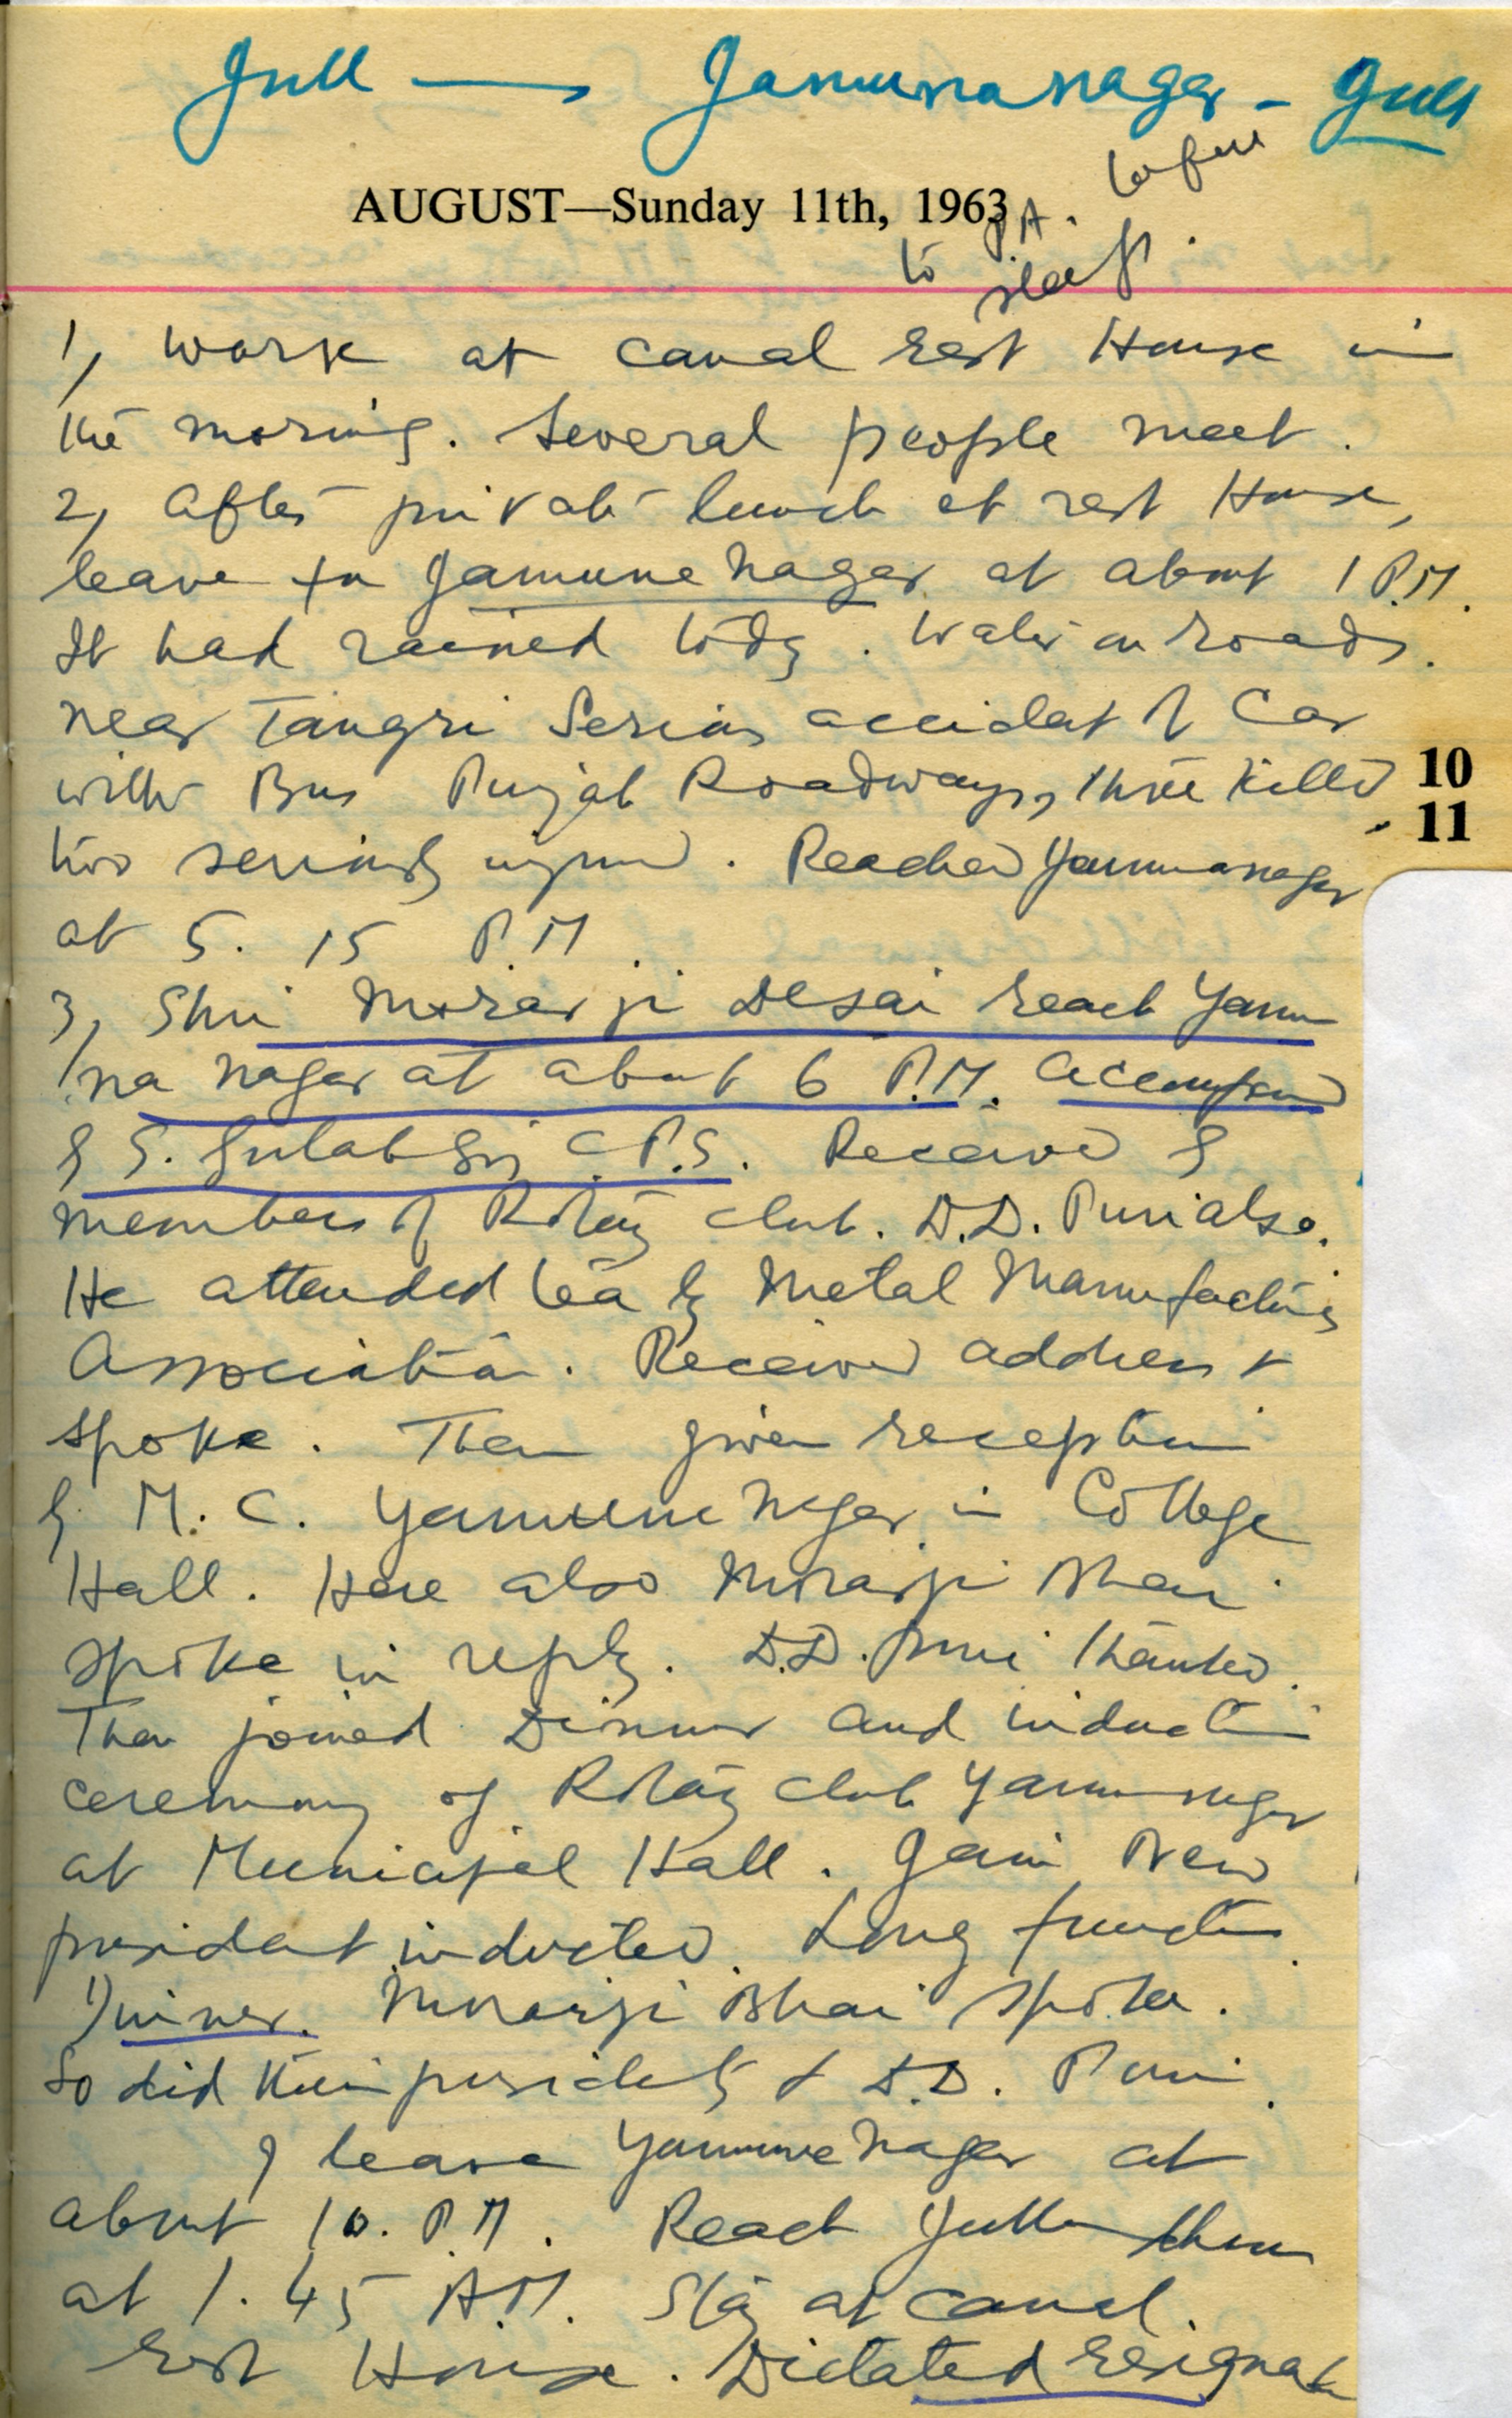 Jull — Jamunanagar - Jull
AUGUST—Sunday 11th, 1963
to P.A. before
sleep.
1, Work at Canal Rest House in
the morning. Several people meet.
2, After private lunch at rest House,
leave for Jamuna Nagar at about 1 P.M.
It had rained today. Water on roads.
Near Tangri Serious accident of Car
with Bus Punjab Roadways, three killed
two seriously injured. Reached Yamunanagar
at 5.15 P.M.
10
11
3, Shri Morarji Desai reach Yamu
na nagar at about 6 P.M. accompanied
by S. Gulab Singh C.P.S. Received by
members of Rotary club. D.D. Puri also.
He attended tea by Metal Manufacturing
Association. Received address &
spoke. Then given reception
by M.C. Yamuna Nagar in College
Hall. Here also Morarji Bhai
spoke in reply. D.D. Puri thanked.
Then joined Dinner and induction
ceremony of Rotary club Yamunanagar
at Municipal Hall. Jain New
president inducted. Long function
Dinner. Morarji Bhai spoke.
So did their presidents & D.D. Puri.
I leave Yamuna Nagar at
about 10. P.M. Reach Jullundhur
at 1.45 A.M. Stay at Canal
Rest House. Dictated resignation